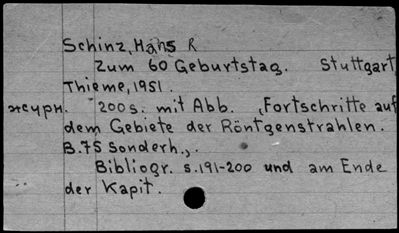 Schinz, Hans R
Zum 60 Geburtstag. Stuttgart,
Thieme, 1951.
журн. 200 s. mit Abb. „Fortschritte auf
dem Gebiete der Röntgenstrahlen.
B.75 Sonderh.„.
Bibliogr. s.191-200 und am Ende
der Kapit.